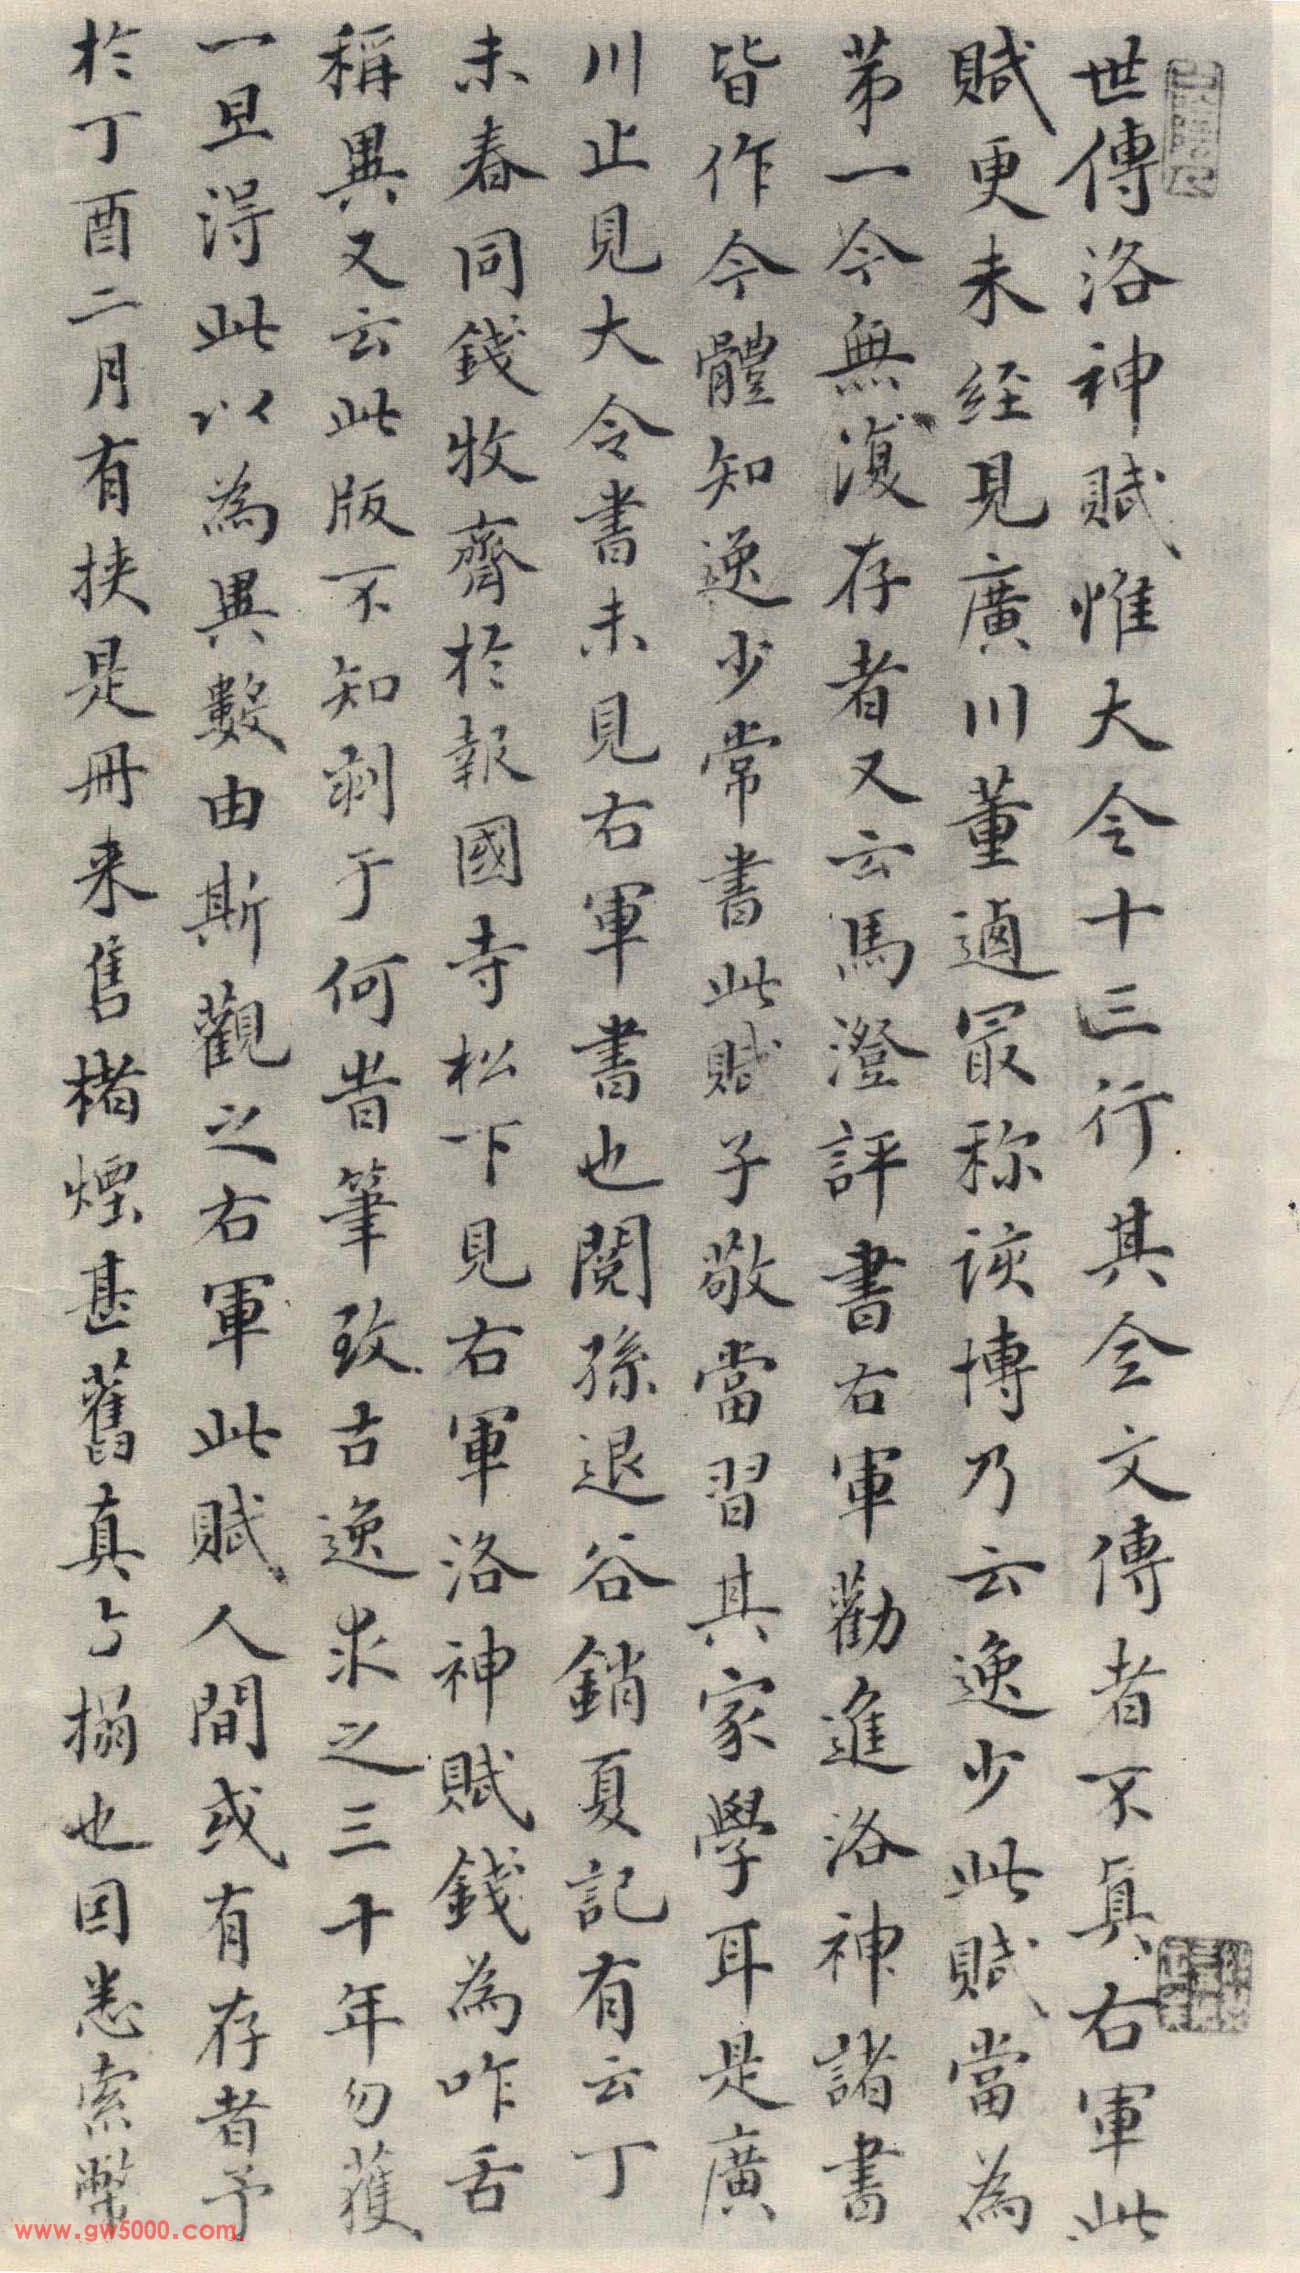 世傳洛神賦惟大令十三行其全文傳者不真右軍此
賦更未經見廣川董逌冣称該博乃云逸少此賦當為
苐一今無復存者又云馬澄評書右軍勸進洛神諸書
皆作今體知逸少常書此賦子敬當習其家學耳是廣
川止見大令書未見右軍書也閱孫退谷銷夏記有云丁
未春同錢牧齋於報國寺松下見右軍洛神賦錢為咋舌
稱異又云此版不知刻于何昔筆致古逸求之三十年勿獲
一旦淂此以為異數由斯觀之右軍此賦人間或有存者予
於丁酉二月有挾是冊来售楮煙甚舊真搨也因悉索幣
www.gw5000.com